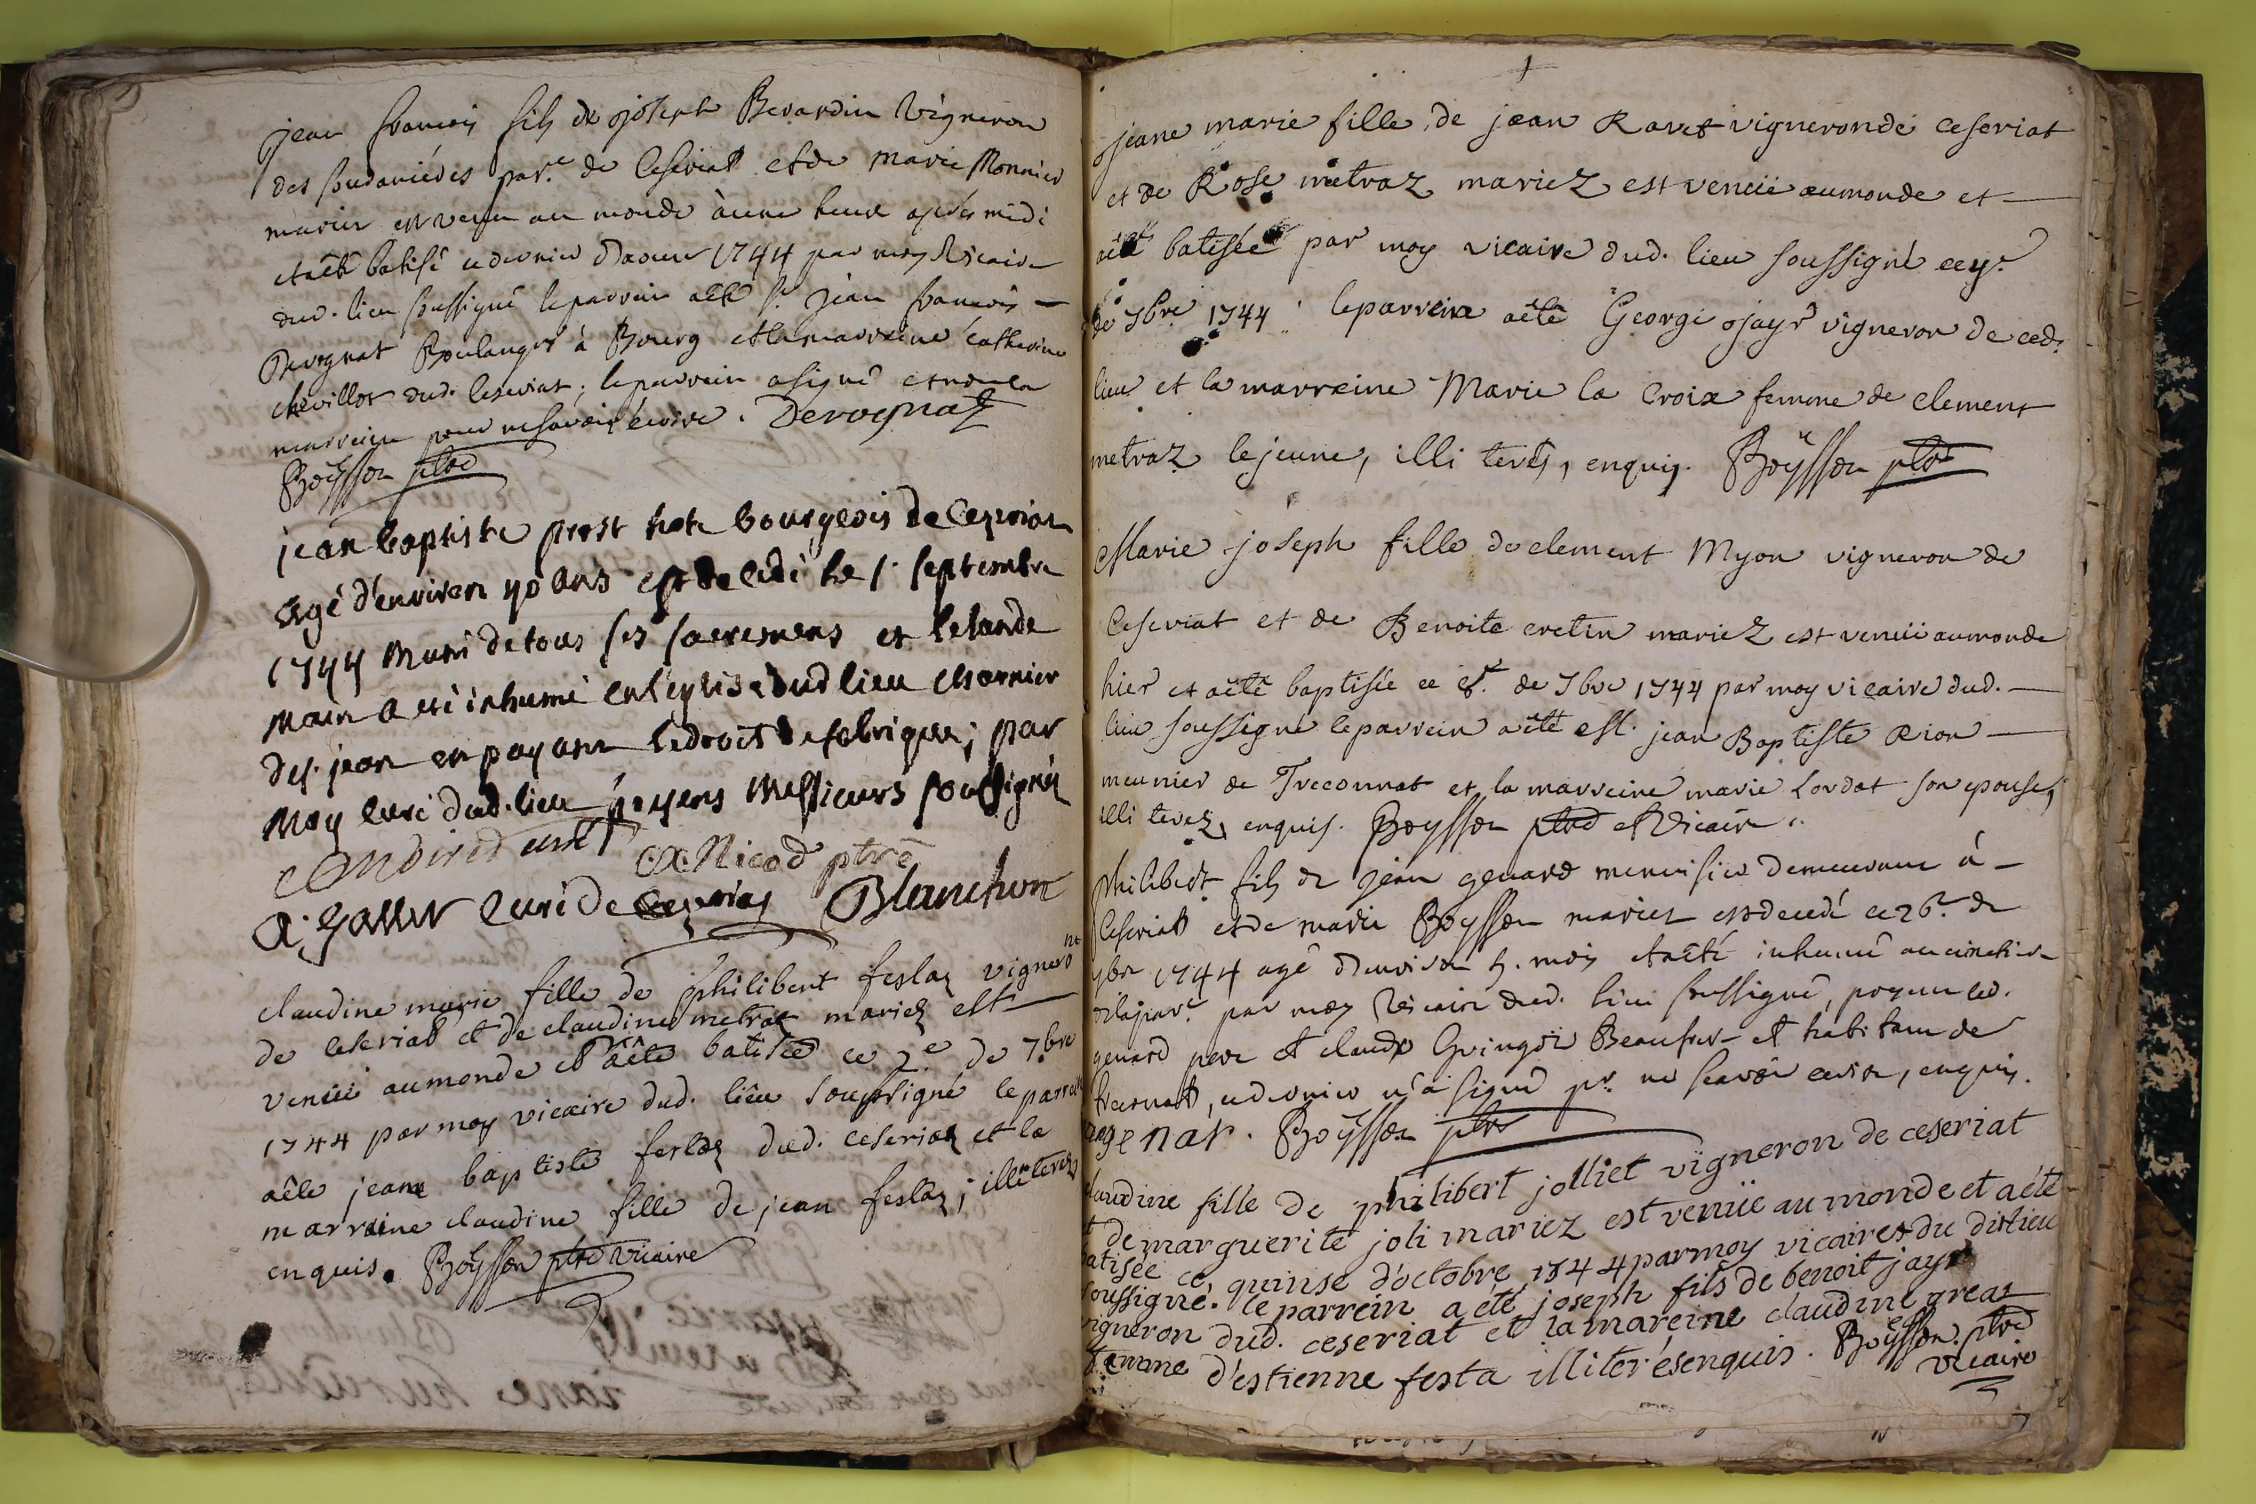 jean francois fils de joseph Berardin Vigneron
des soudanières par.e de Ceseriat et de marie Monnier
mariez est venu au monde à une heure après midi
et a êté batisé ce dernier d'aoust 1744 par moy Vicaire
dud. lieu soussigné le parrein a êté Sr. jean francois
Derognat Boulanger à Bourg et la marreine catherine
chevillot dud. Ceseriat; le parrein a signé et non la
marreine pour ne savoir écrire. Derognat
Boÿsson ptre
jean baptiste prost hote bourgeois de Ceyseriat
agé d'environ 40 ans est decedé le 1.r septembre
1744 muni de tous ses sacremens et le lande
main a eté inhumé en l'eglise dud lieu charnier
de s. jean en payant le droit de fabrique; par
moy curé dud. lieu presens messieurs soussignés
Nicod ptre
curé de Ceyseriat Blanchon
claudine marie fille de philibert feslaz vigneron
de ceseriat et de claudine metraz mariez est
venüe au monde et a êté batisée ce 2.e de 7.bre
1744 par moy vicaire dud. lieu soussigné le parrein
a êté jean baptiste feslaz dud. ceseriat et la
marraine claudine fille de jean feslaz; illiterez
enquis. Boÿsson ptre vicaire
jeane marie fille de jean Ravet vigneron de Ceseriat
et de Rose metraz mariez est venüe au monde et
a été batisée par moy vicaire dud. lieu soussigné ce 4.e
de 7bre 1744 le parrein a êté George jayr vigneron de ced.
lieu et la marreine Marie la Croix femme de clement
metraz le jeune, illiterés, enquis. Boÿsson ptre
Marie joseph fille de clement Myon vigneron de
Ceseriat et de Benoite cretin mariez est venüe au monde
hier et a êté baptisée ce 8.e de 7bre 1744 par moy vicaire dud.
lieu soussigné le parrein a êté jean Baptiste Rion
meunier de Treconnat et la marreine marie Lordat son epouse,
illiterez, enquis. Boysson ptre et Vicaire
philibert fils de jean genard menuisier demeurant à
Ceseriat et de marie Boysson mariez est decedé ce 26.e de
7bre 1744 agé d'environ 5. mois et a êté inhumé au cimetiere
de la par.e par moy Vicaire dud. lieu soussigné, present led.
genard pere et claude Beaufrere et habitant de
ce dernier n'a signé pr. ne scavoir ecrire, enquis.
genar. Boÿsson ptre
claudine fille de philibert jolliet vigneron de ceseriat
et de marguerite joli mariez est venüe au monde et a été
batisée ce quinse d'octobre 1744 par moy vicaire du dit lieu
soussigné. le parrein a été joseph fils de benoit jayr
vigneron dud. ceseriat et la mareine claudine greas
femme d'estienne festa illiterés enquis. Boÿsson ptre
vicaire